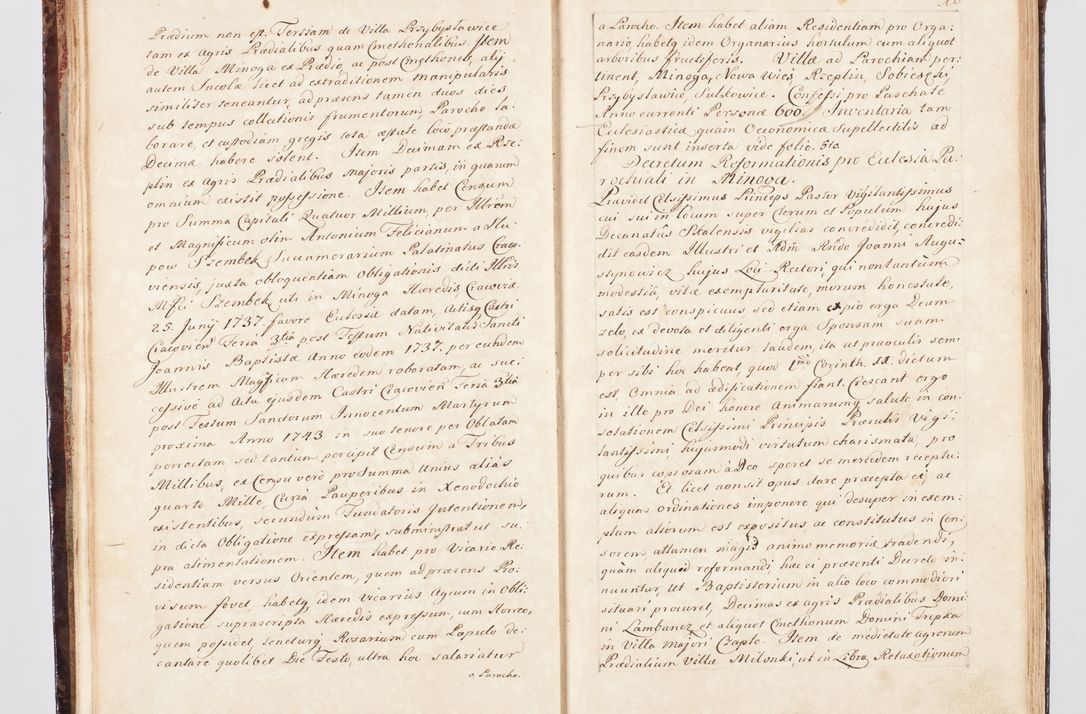 Prædium non est. Tertiam de Villa Przybysławice
tam ex Agris Prædialibus quam Cmethonalibus. Item
de Villa Minoga ex Prædio, ac post Cmethones, alij
autem Incolæ licet ad extraditionem manipularis
similiter teneantur, ad præsens tamen duos dies
sub tempus collectionis frumentorum Parocho la-
borare, et custodiam gregis tota æstate loco præstandæ
Decimæ habere solent. Item Decimam ex Rze-
plin ex Agris Prædialibus majoris partis, in quarum
omnium existit possessione. Item habet Censum
pro Summa Capitali Quatuor Millium, per Illrem
et Magnificum olim Antonium Felicianum a Słu-
pow Szembek Succamerarium Palatinatus Craco-
viensis, juxta obloquentiam Obligationis dicti Illris
Mfci Szembek, uti in Minoga Hæredis Cracoviæ
25. Junij 1737. favore Ecclesiæ datam, Actisq Castri
Cracovien Feria 3tia post Festum Nativitatis Sancti
Joannis Baptistæ Anno eodem 1737. per eundem
Illustrem Magnificum Hæredem roboratam, ac suc-
cessive ad Acta ejusdem Castri Cracovien Feria 3tia
post Festum Sanctorum Innocentum Martyrum
proxima Anno 1743 in suo tenore per Oblatam
porrectam sed tantum percipit Censum a Tribus
Millibus, ex Censu verò pro Summa Unius aliàs
quarto Mille, Curia Pauperibus in Xenodochio
existentibus, secundùm Fundatoris Intentionem,
in dicta Obligatione expressam, subministrat ut su-
pra alimentationem. Item habet pro Vicario Re-
sidentiam versus Orientem, quem ad præsens Pro-
visum fovet, habetq idem Vicarius Agrum in Obli-
gatione suprascripta Hæredis expressum, cum Horreo,
quem possidet, teneturq Rosarium cum Populo de-
cantare quolibet Die Festo, ultra hoc salariatur
a Parocho.
a Parocho. Item habet aliam Residentiam pro Orga-
nario, habetq idem Organarius hortulum cum aliquot
arboribus fructiferis. Villæ ad Parochiam per-
tinent, Minoga, Nowa Wieś, Rzeplin, Sobieseki
Przybysławice Sulkowice. Confessi pro Paschate
Anno currenti Personæ 600. Inventaria tam
Ecclesiasticæ quàm Œconomicæ Supellectilis ad
finem sunt inserta vide folio. 510.
Decretum Reformationis pro Ecclesia Pa-
rochiali in Minoga.
Prævidit Celsissimus Princeps Pastor Vigilantissimus
cui sui in locum super Clerum et Populum hujus
Decanatûs Skalensis vigilias concredidit, concredi-
dit easdem Illustri et Adm Rndo Joanni Augu-
stynowicz hujus Loci Rectori, qui non tantùm a
modestia, vitæ exemplaritate, morum honestate,
satis est conspicuus, sed etiam ex pio erga Deum
zelo, ex devota et diligenti erga Sponsam suam
solicitudine meretur laudem, ita ut præoculis sem-
per sibi hoc habeat, quod 1mo Corinth. 14. dictum
est, Omnia ad ædificationem fiant. Crescant ergo
in illo pro Dei honore Animarumq salute in con-
solationem Celsissimi Principis Præsulis Vigi-
lantissimi hujusmodi virtutum charismata, pro
quibus copiosam à Deo speret se mercedem receptu-
rum. Et licet non sit opus dare præcepta ei, ac
aliquas ordinationes imponere qui desuper in exem-
plum aliorum est expositus ac constitutus in Cen-
sorem attamen magis animo memoriæ tradendi,
quàm aliquid reformandi, hæc ei præsenti Decreto in-
nuuntur, ut Baptisterium in alio loco commodiori
situari procuret, Decimas ex agris Prædialibus Domi-
ni Lambuncz et aliquot Cmethonum Domini Trepka
in Villa majori Czaple. Item de medietate agrorum
Prædialium Villæ Milonki, ut in Libro Retaxationum